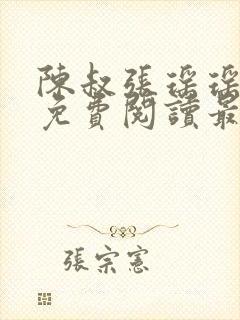 陳叔張瑶瑶
免費閱讀最
張宗憲